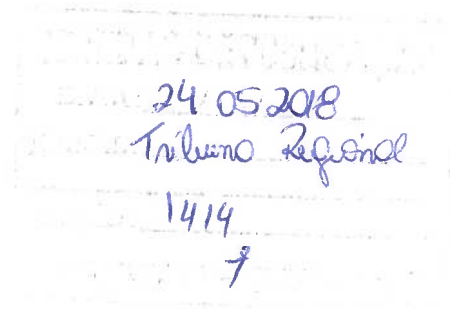 24 05 2018
Tribuna Regional
1414
7